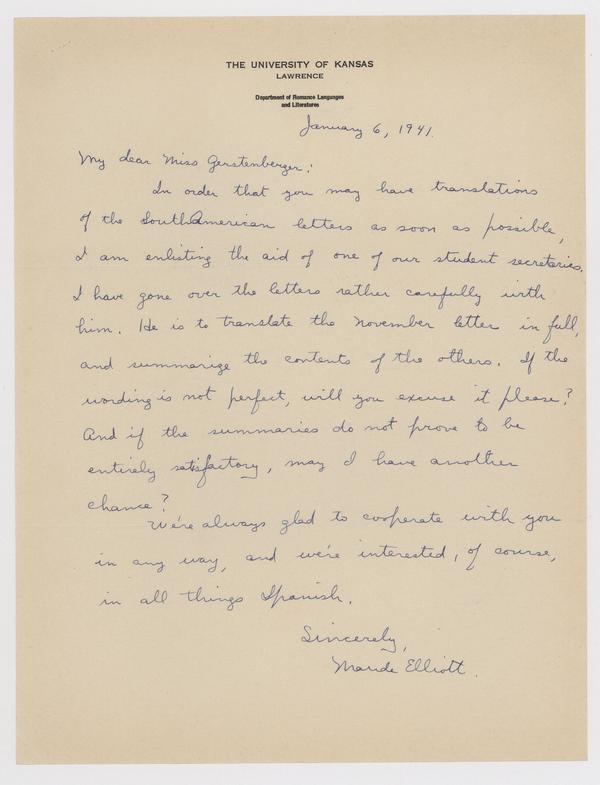 THE UNIVERSITY OF KANSAS
LAWRENCE
Department of Romance Languages
and Literatures
January 6, 1941.
My dear Miss Gerstenberger:
In order that you may have translations
of the South American letters as soon as possible,
I am enlisting the aid of one of our student secretaries.
I have gone over the letters rather carefully with
him. He is to translate the November letter in full,
and summarize the contents of the others. If the
wording is not perfect, will you excuse it please?
And if the summaries do not prove to be
entirely satisfactory, may I have another
chance?
We're always glad to cooperate with you
in any way, and we're interested, of course,
in all things Spanish.
Sincerely,
Maude Elliott.